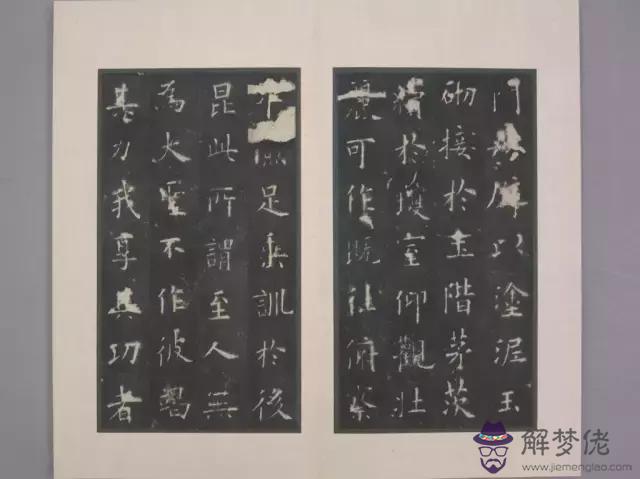 以塗泥玉
砌接於土階茅茨
於瓊室仰觀壯
可作既往俯察
足垂訓於後
昆此所謂至人無
為大聖不作彼竭
其力我享其功者
解梦佬
www.jiemenglao.com